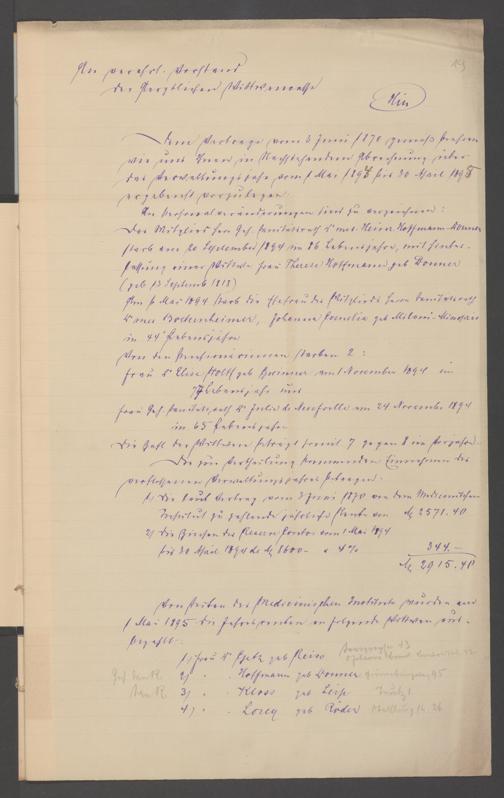 An verehrl. Vorstand
der Aerztlichen Wittwencasse
Hier
Dem Vertrage vom 3 Juni 1870 gemäss beehren
wir uns Ihnen in Nachstehendem Abrechnung über
das Verwaltungsjahr vom 1 Mai 1894 bis 30 April 1895
ergebenst vorzulegen.
An Personalveränderungen sind zu verzeichnen:
Das Mitglied Herr Geh. Sanitätsrath Dr med. Heinr. Hoffmann-Donner
starb am 20 September 1894 im 86 Lebensjahre, mit Hinter-
lassung einer Wittwe Frau Therese Hoffmann geb Donner
(geb 13 Septemb 1818)
Am 6 Mai 1894 starb die Ehefrau des Mitglieds Herrn Sanitätsrath
Dr med Bockenheimer, Johanna Cornelia geb Milani
in 44 Lebensjahre
Von den Pensionärinnen starben 2:
Frau Dr Elise Stolz geb am 1 November 1894 im
Lebensjahr und
Frau Geh. Sanitätsrath Dr Julie de Neufville am 24 November 1894
im 65 Lebensjahre
Die Zahl der Wittwen beträgt somit 7 gegen 8 im Vorjahre.
Die zur Vertheilung kommenden Einnahmen des
verflossenen Verwaltungsjahres betragen:
1) Die laut Vertrag vom 3 Juni 1870 von dem Medicinischen
Institut zu zahlende jährliche Rente von M 2571. 40
2) Die Zinsen des Reserve Contos vom 1 Mai 1894
bis 30 April 1895 de M 8600.- a 4% 344.-
M 2915. 40
Von Seiten des Medicinischen Instituts wurden am
1 Mai 1895 die Jahresrenten an folgende Wittwen aus-
bezahlt:
1) Frau Dr geb Reiss
2) " " Hoffmann geb Donner
3) " " Kloss geb
4) " " Lorey geb Röder